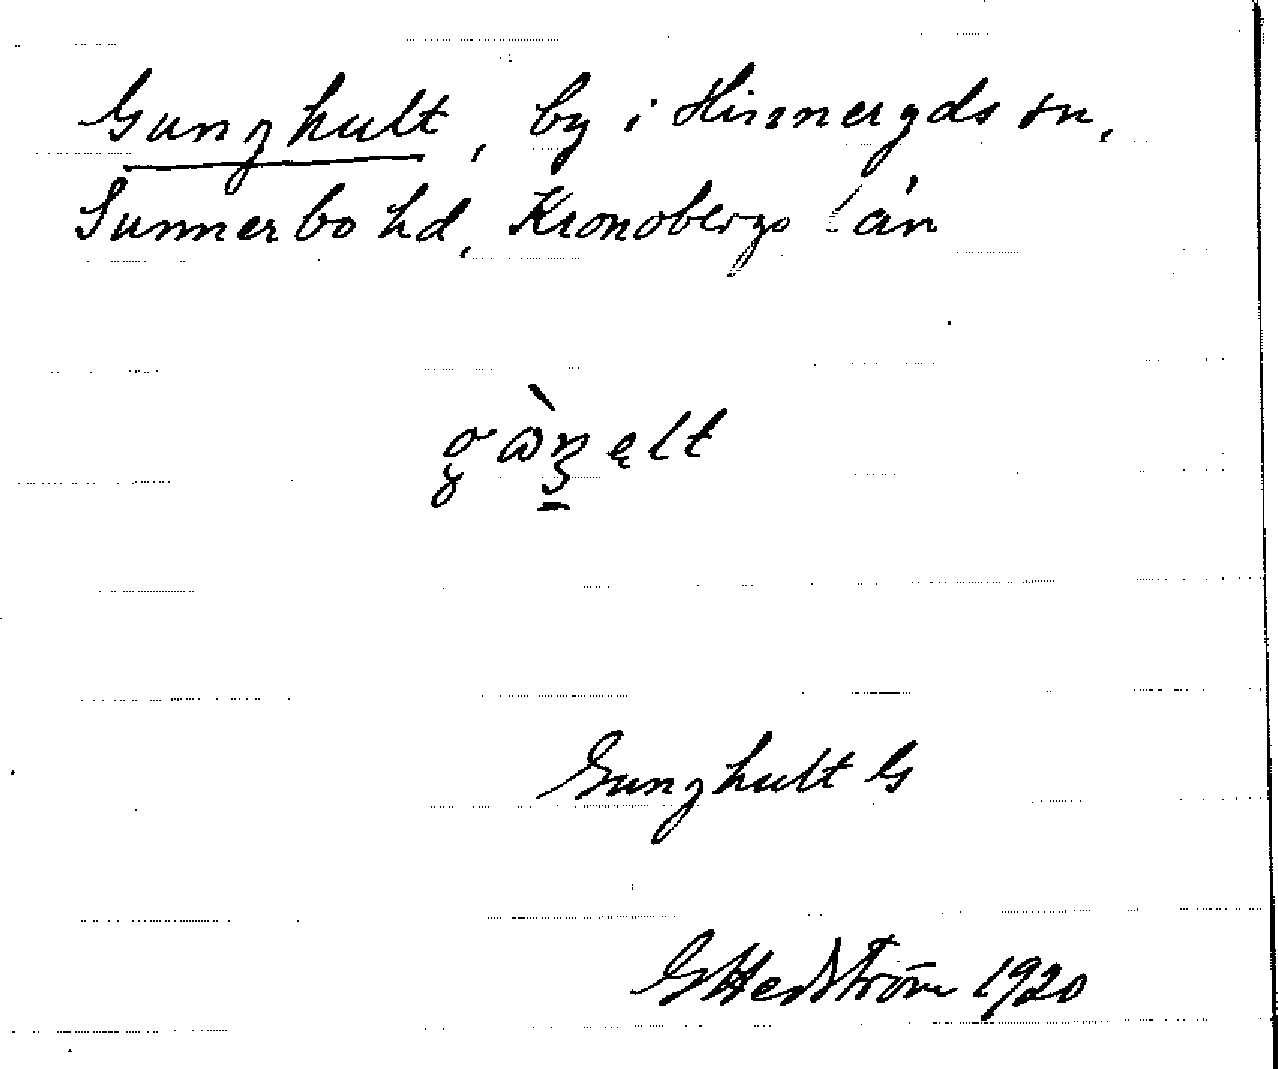 Gunghult, by i Hinneryds sn,
Sunnerbo hd, Kronobergs län
Gunghult G
G Hedström 1920